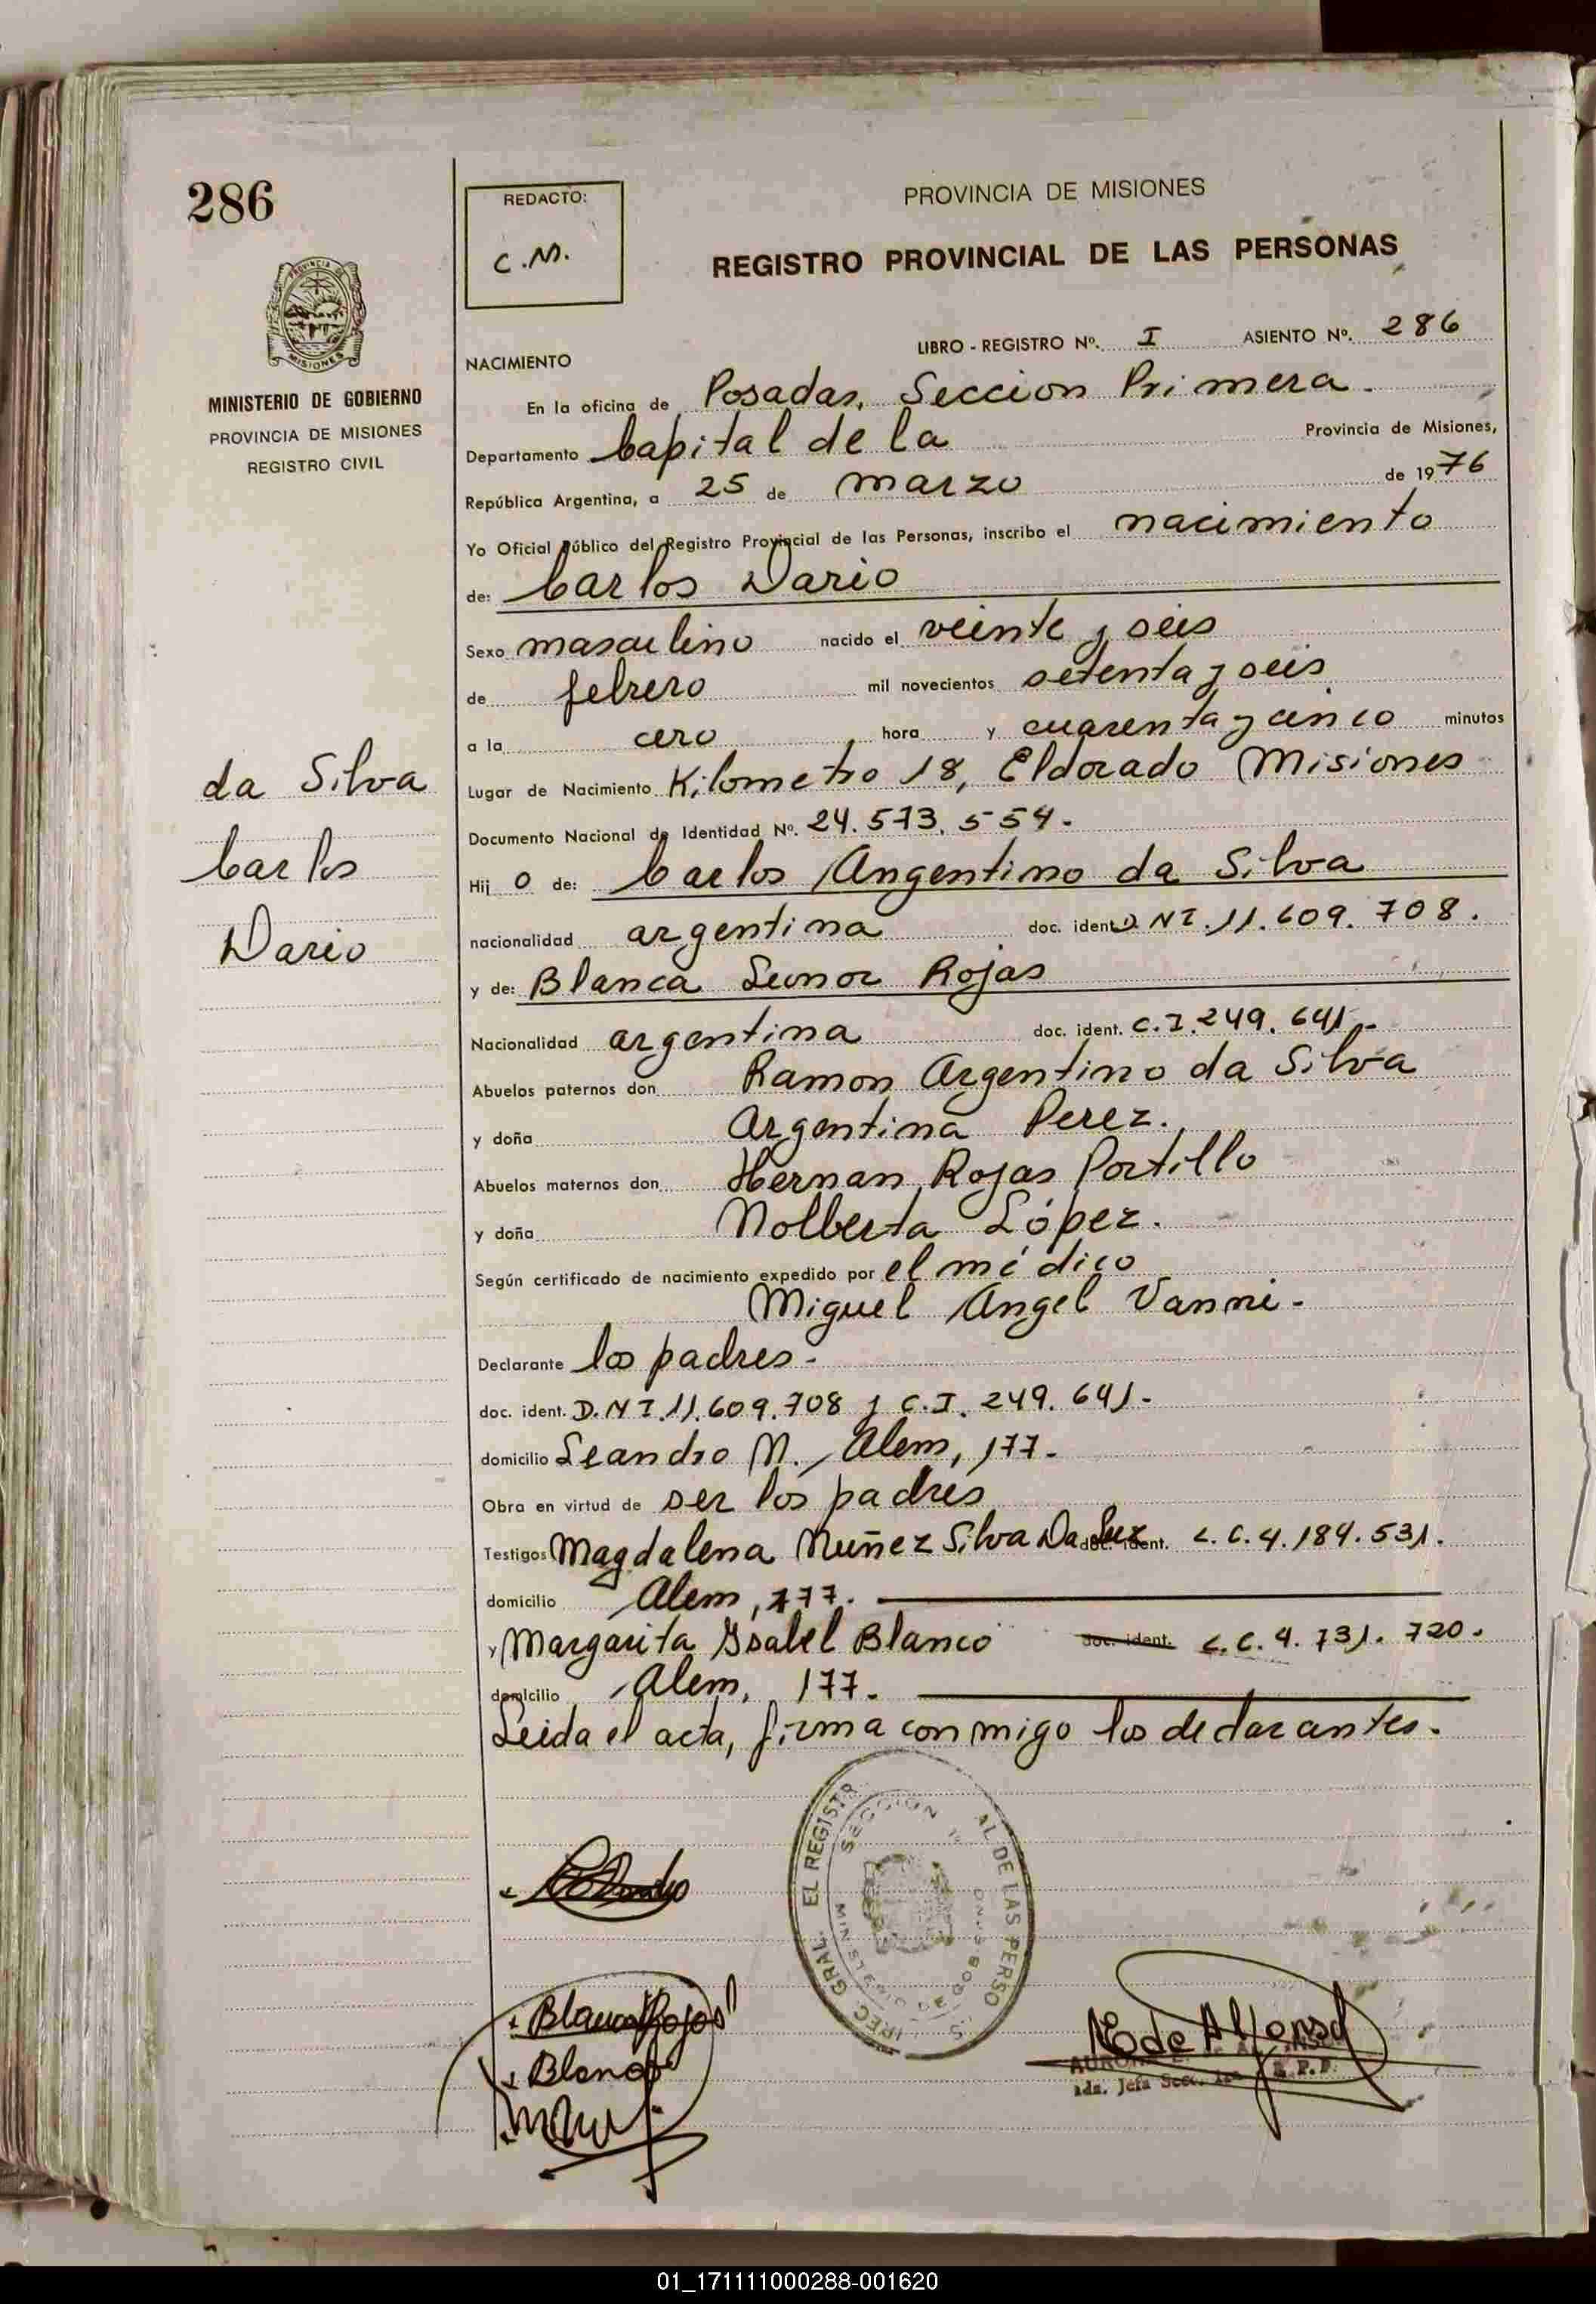 286
REDACTO:
C.M.
PROVINCIA DE MISIONES
REGISTRO PROVINCIAL DE LAS PERSONAS
PROVINCIA DE
MISIONES
MINISTERIO DE GOBIERNO
PROVINCIA DE MISIONES
REGISTRO CIVIL
LIBRO - REGISTRO Nº. I ASIENTO Nº. 286
NACIMIENTO
En la oficina de Posadas, Seccion Primera.
Departamento Capital de la Provincia de Misiones,
República Argentina, a 25 de marzo de 1976
Yo Oficial Público del Registro Provincial de las Personas, inscribo el nacimiento
de: Carlos Dario
Sexo masculino nacido el veinte y seis
de febrero mil novecientos setenta y seis
a la cero hora y cuarenta y cinco minutos
da Silva
Carlos
Dario
Lugar de Nacimiento Kilometro 18, Eldorado Misiones
Documento Nacional de Identidad Nº. 24.573.554.
Hij o de: Carlos Argentino da Silva
nacionalidad argentina doc. ident. D.N.I. 11.609.708.
y de: Blanca Leonor Rojas
Nacionalidad argentina doc. ident. C.I. 249.641.-
Abuelos paternos don Ramon Argentino da Silva
y doña Argentina Perez.
Abuelos maternos don Hernan Rojas Portillo
y doña Nolberta López.
Según certificado de nacimiento expedido por el médico
Miguel Angel Vanni.
Declarante los padres.
doc. ident. D.N.I. 11.609.708 y C.I. 249.641.-
domicilio Leandro N. Alem, 177.
Obra en virtud de ser los padres
Testigos Magdalena Nuñez Silva Da Luz doc. ident. L.C. 4.184.531.
domicilio Alem, 177.
y Margarita Ysabel Blanco doc. ident. L.C. 4.731.720.
domicilio Alem, 177.
Leida el acta, firma conmigo los declarantes.
EL REGISTR AL DE LAS PERSO
SECCION 1a
MINISTERIO DE GOBIERNO
DIREC. GRAL.
Blanca Rojas
Blanco
E de Alfonso
01_171111000288-001620